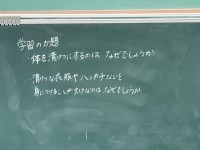 学習の方題
・体を清けつにするのは なぜでしょうか
・清けつな衣服やハンカチなどを
身につけることが大切なのは なぜでしょうか